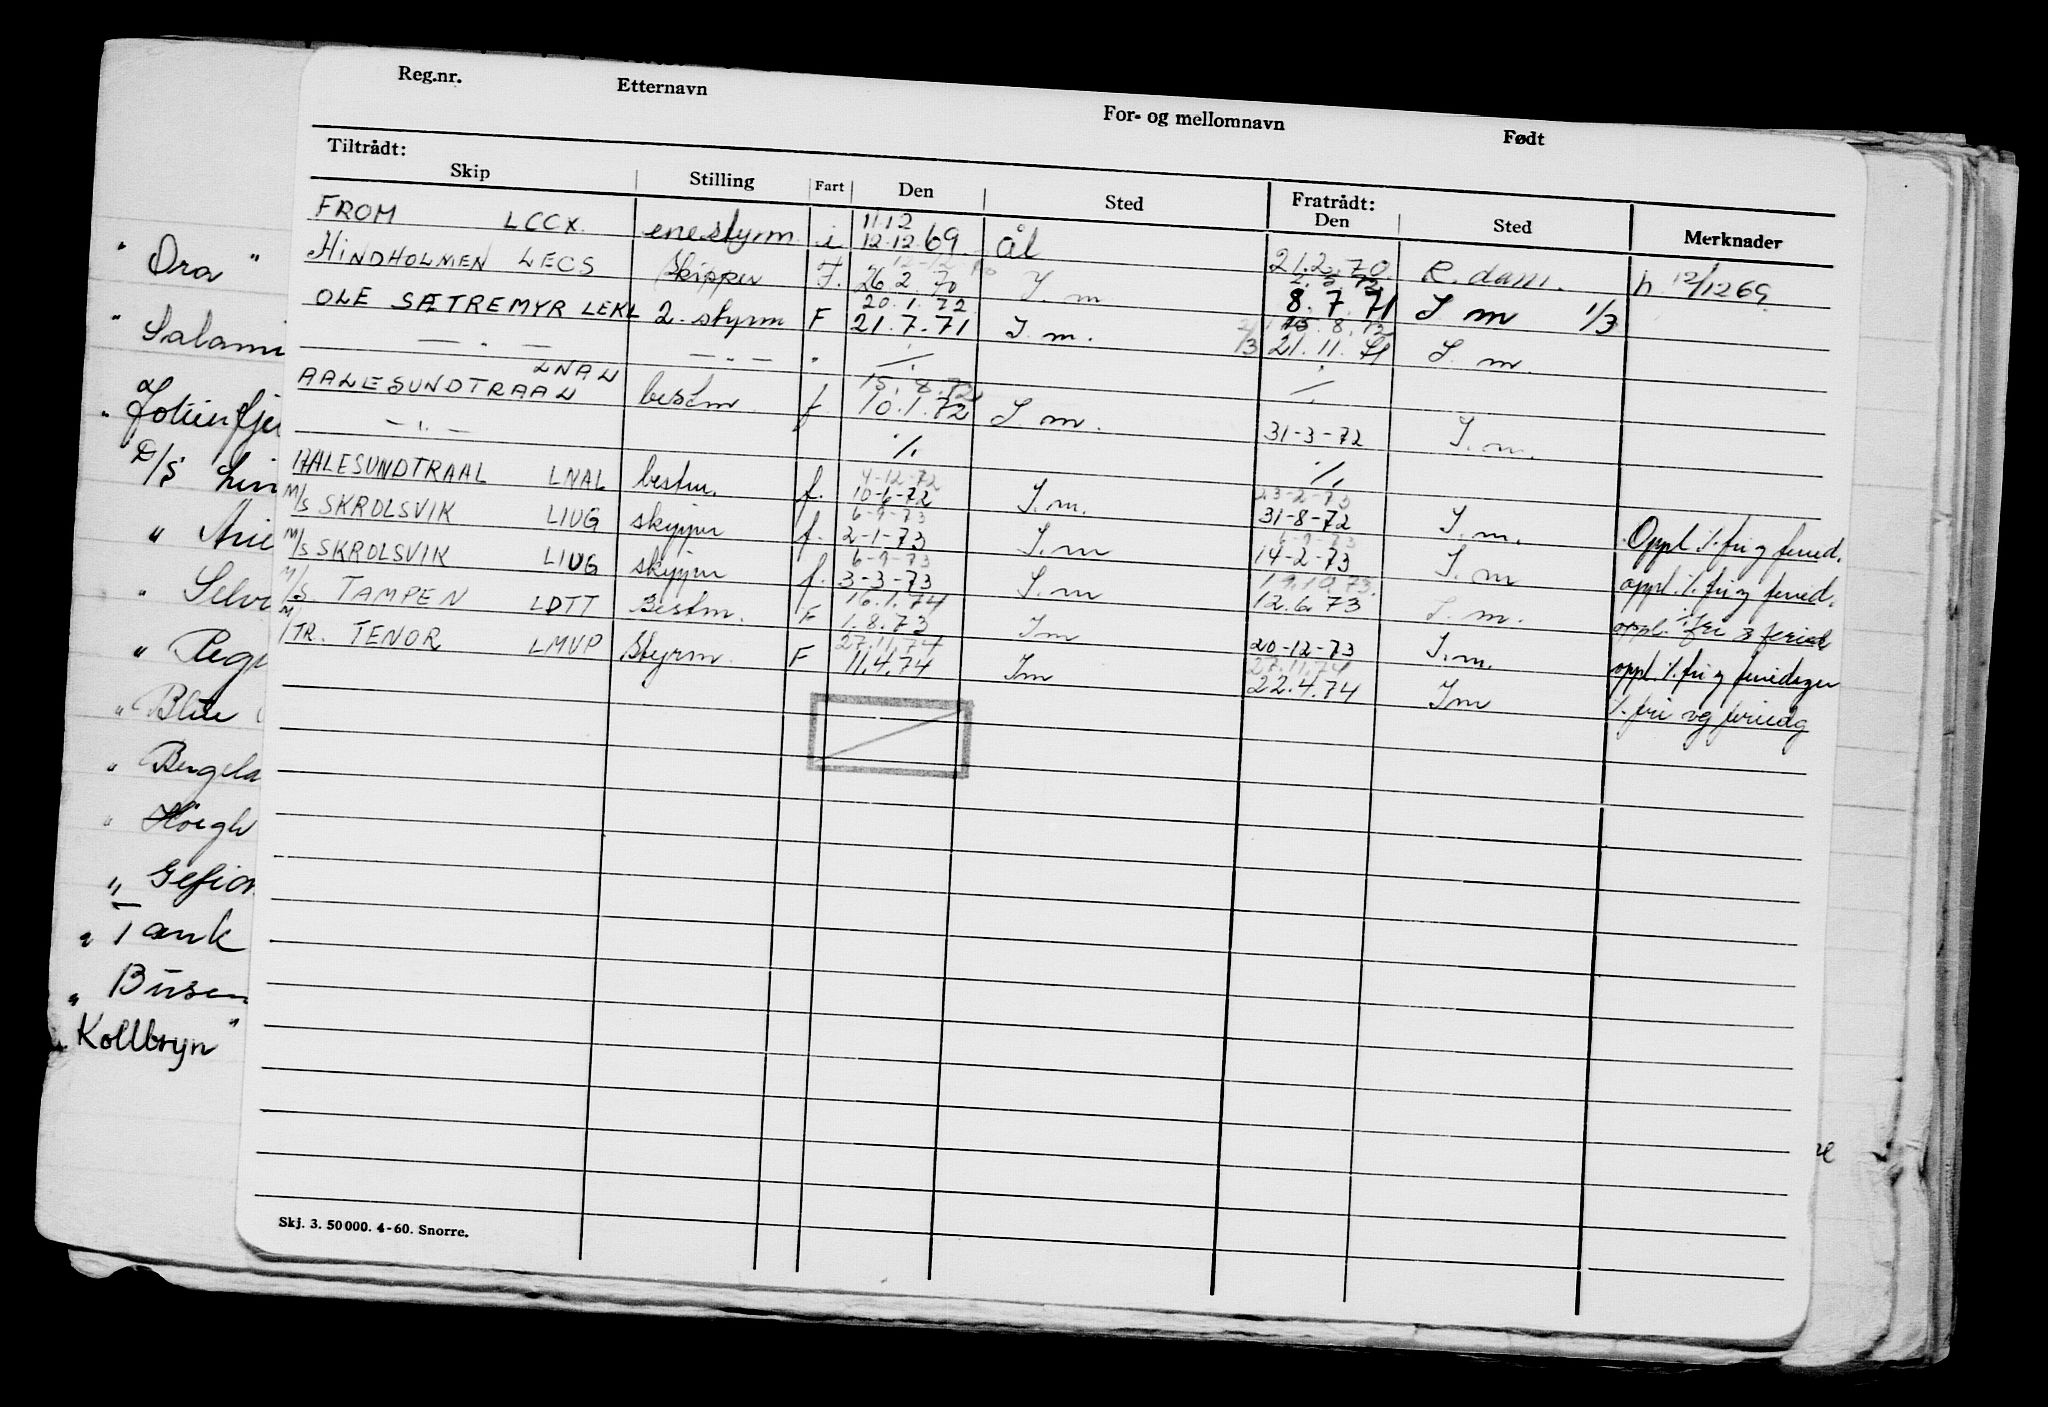 Reg.nr. Etternavn For- og mellomnavn Født
Tiltrådt: Fratrådt:
Skip Stilling Fart Den Sted Den Sted Merknader
11.12
FROM LCCX enestyrm. i 12.12.69. ål 21.2.70 R.dam. h 12/12 69
HINDHOLMEN LECS Skipper F. 26 2. 70 I. m 8. 7. 71 I m 1/3
20. 1. 72
OLE SÆTREMYR LEKL 2. styrm F 21.7.71 I. m. 21. 11. 71 I. m.
— " — — " — " ./. ./.
LNAL 15. 8. 72
AALESUNDTRAAL bestm f. 10.1.72 I. m. 31-3-72 I. m.
— " — ./. ./.
4-12-72 23-2-73
AALESUNDTRAAL LNAL bestm. f. 10-6-72 I. m. 31-8-72 I. m. Oppl. ./. fri og feried.
6-9-73 6-9-73
M/S SKROLSVIK LIUG skipper f. 2-1-73 I. m 14-2-73 I. m oppl. ./. fri og feried.
6-9-73 19.10.73.
M/S SKROLSVIK LIUG skipper f. 3-3-73 I. m 12.6.73 I. m. oppl. ./. fri og feried
16.1.74
M/S. TAMPEN LDTT Bestm. F 1.8.73 Im 20-12-73 I. m. oppl. ./. fri og feriedager
27.11.74 27.11.74
M/TR. TENOR LMVP Styrm. F 11.4.74 Im 22.4.74 Im ./. fri og feriedg
" Ora "
" Salami
" Jotunfje
D/S Lin
" Selv
" Bergela
" Høegh
" Gefion
" Tank
" Busen
" Kollbryn "
Skj. 3. 50 000. 4-60. Snorre.